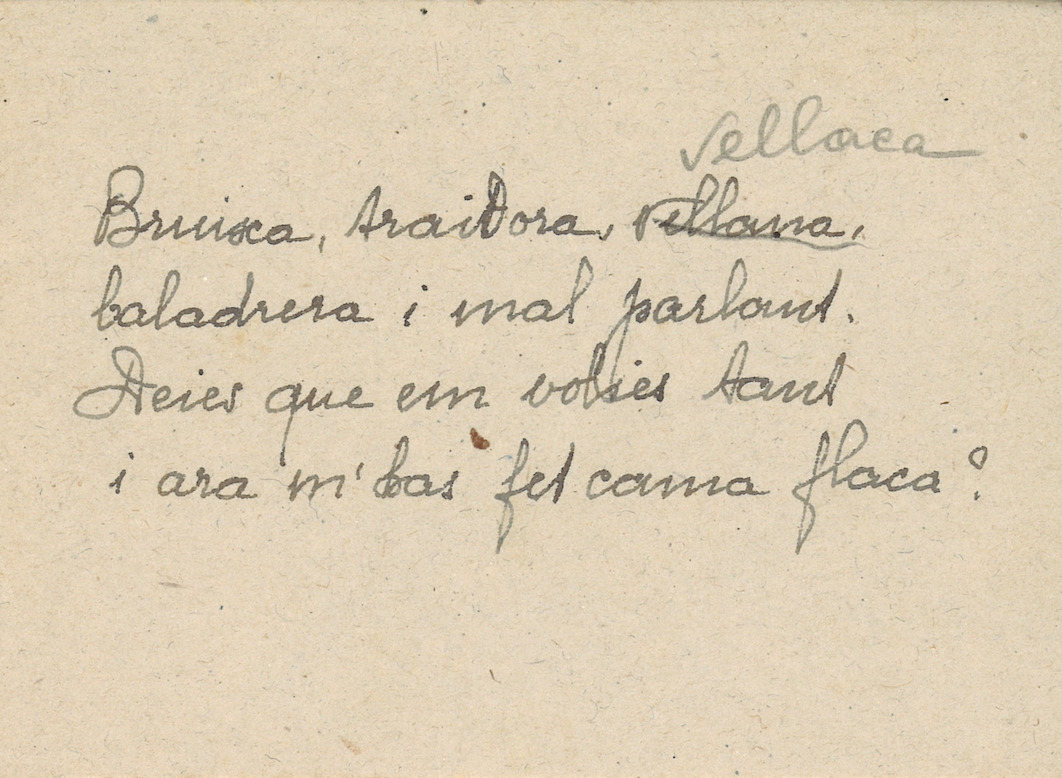 vellaca
Bruixa, traidora, vellana,
baladrera i mal parlant.
Deies que em volies tant
i ara m'has fet cama flaca?